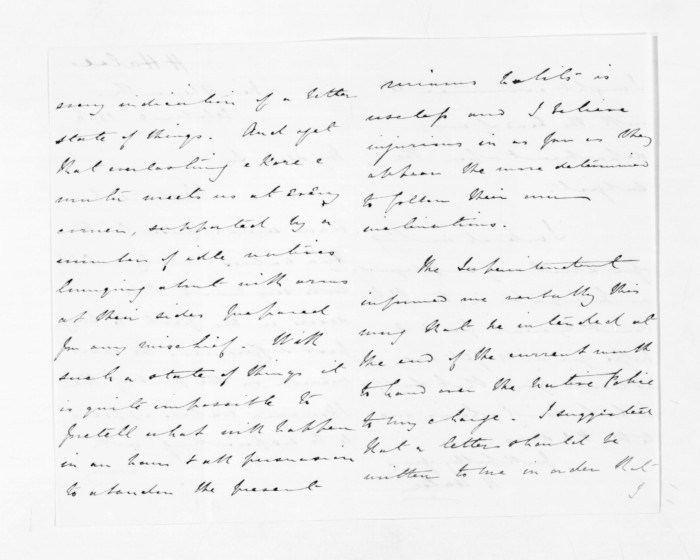 every indication of a better
state of things. And yet
that everlasting Korero
mania meets us at every
corner, supported by a
number of idle natives
lounging about with arms
at their sides prepared
for any mischief. With
such a state of things it
is quite impossible to
foretell what will happen
in an hour & all persuasion
to abandon the present
ruinous habits is
useless and I believe
injurious in as far as they
appear the more determined
to follow their own
inclinations.
The Superintendent
informed me verbally this
morng that he intended at
the end of the current month
to hand over the Native Police
to my charge. I suggested
that a letter should be
written to me in order that
I